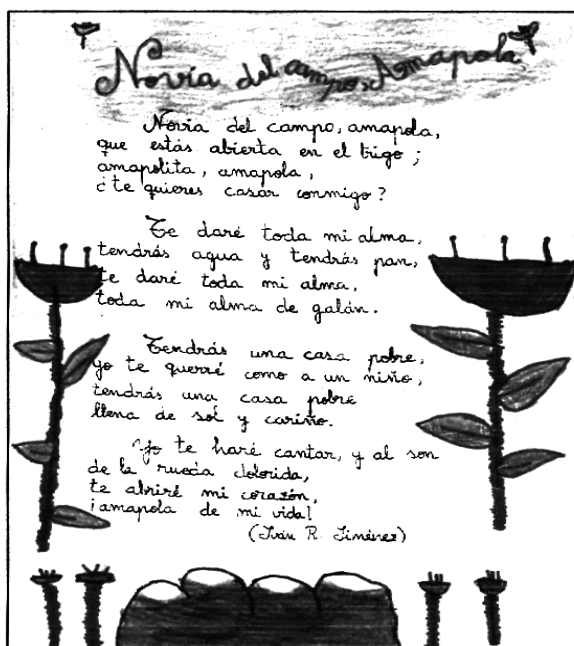 Novia del campo, Amapola
Novia del campo, amapola,
que estás abierta en el trigo;
amapolita, amapola,
¿te quieres casar conmigo?
Te daré toda mi alma,
tendrás agua y tendrás pan,
te daré toda mi alma,
toda mi alma de galán.
Tendrás una casa pobre,
yo te querré como a un niño,
tendrás una casa pobre
llena de sol y cariño.
Yo te haré cantar, y al son
de la rueda dolorida,
te abriré mi corazón,
¡amapola de mi vida!
(Juan R. Jiménez)